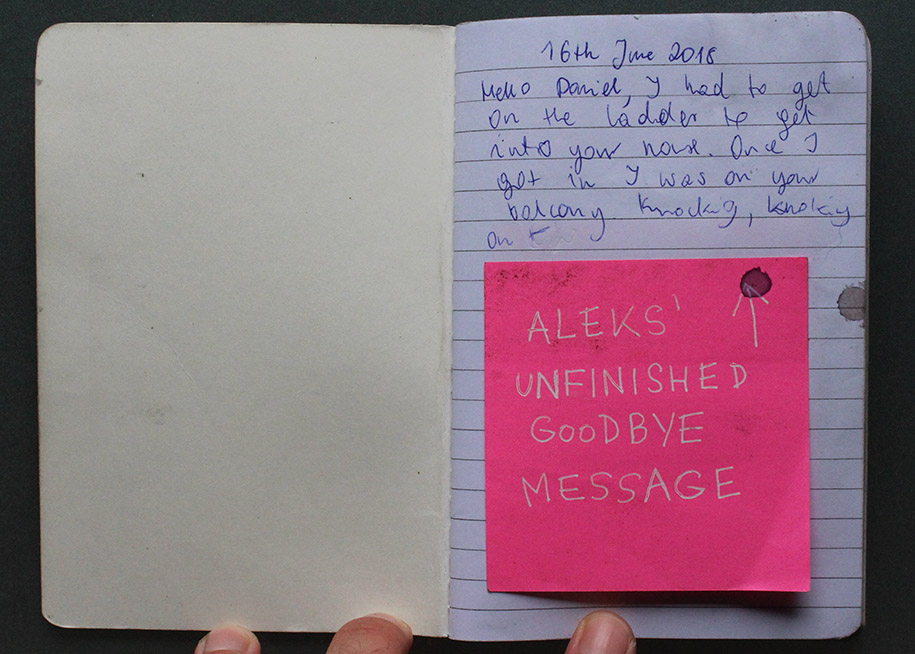 16th June 2018
Hello Daniel, I had to get
on the ladder to get
into your house. Once I
got in I was on your
balcony. Knocking, knoking
on t
ALEKS'
UNFINISHED
GOODBYE
MESSAGE